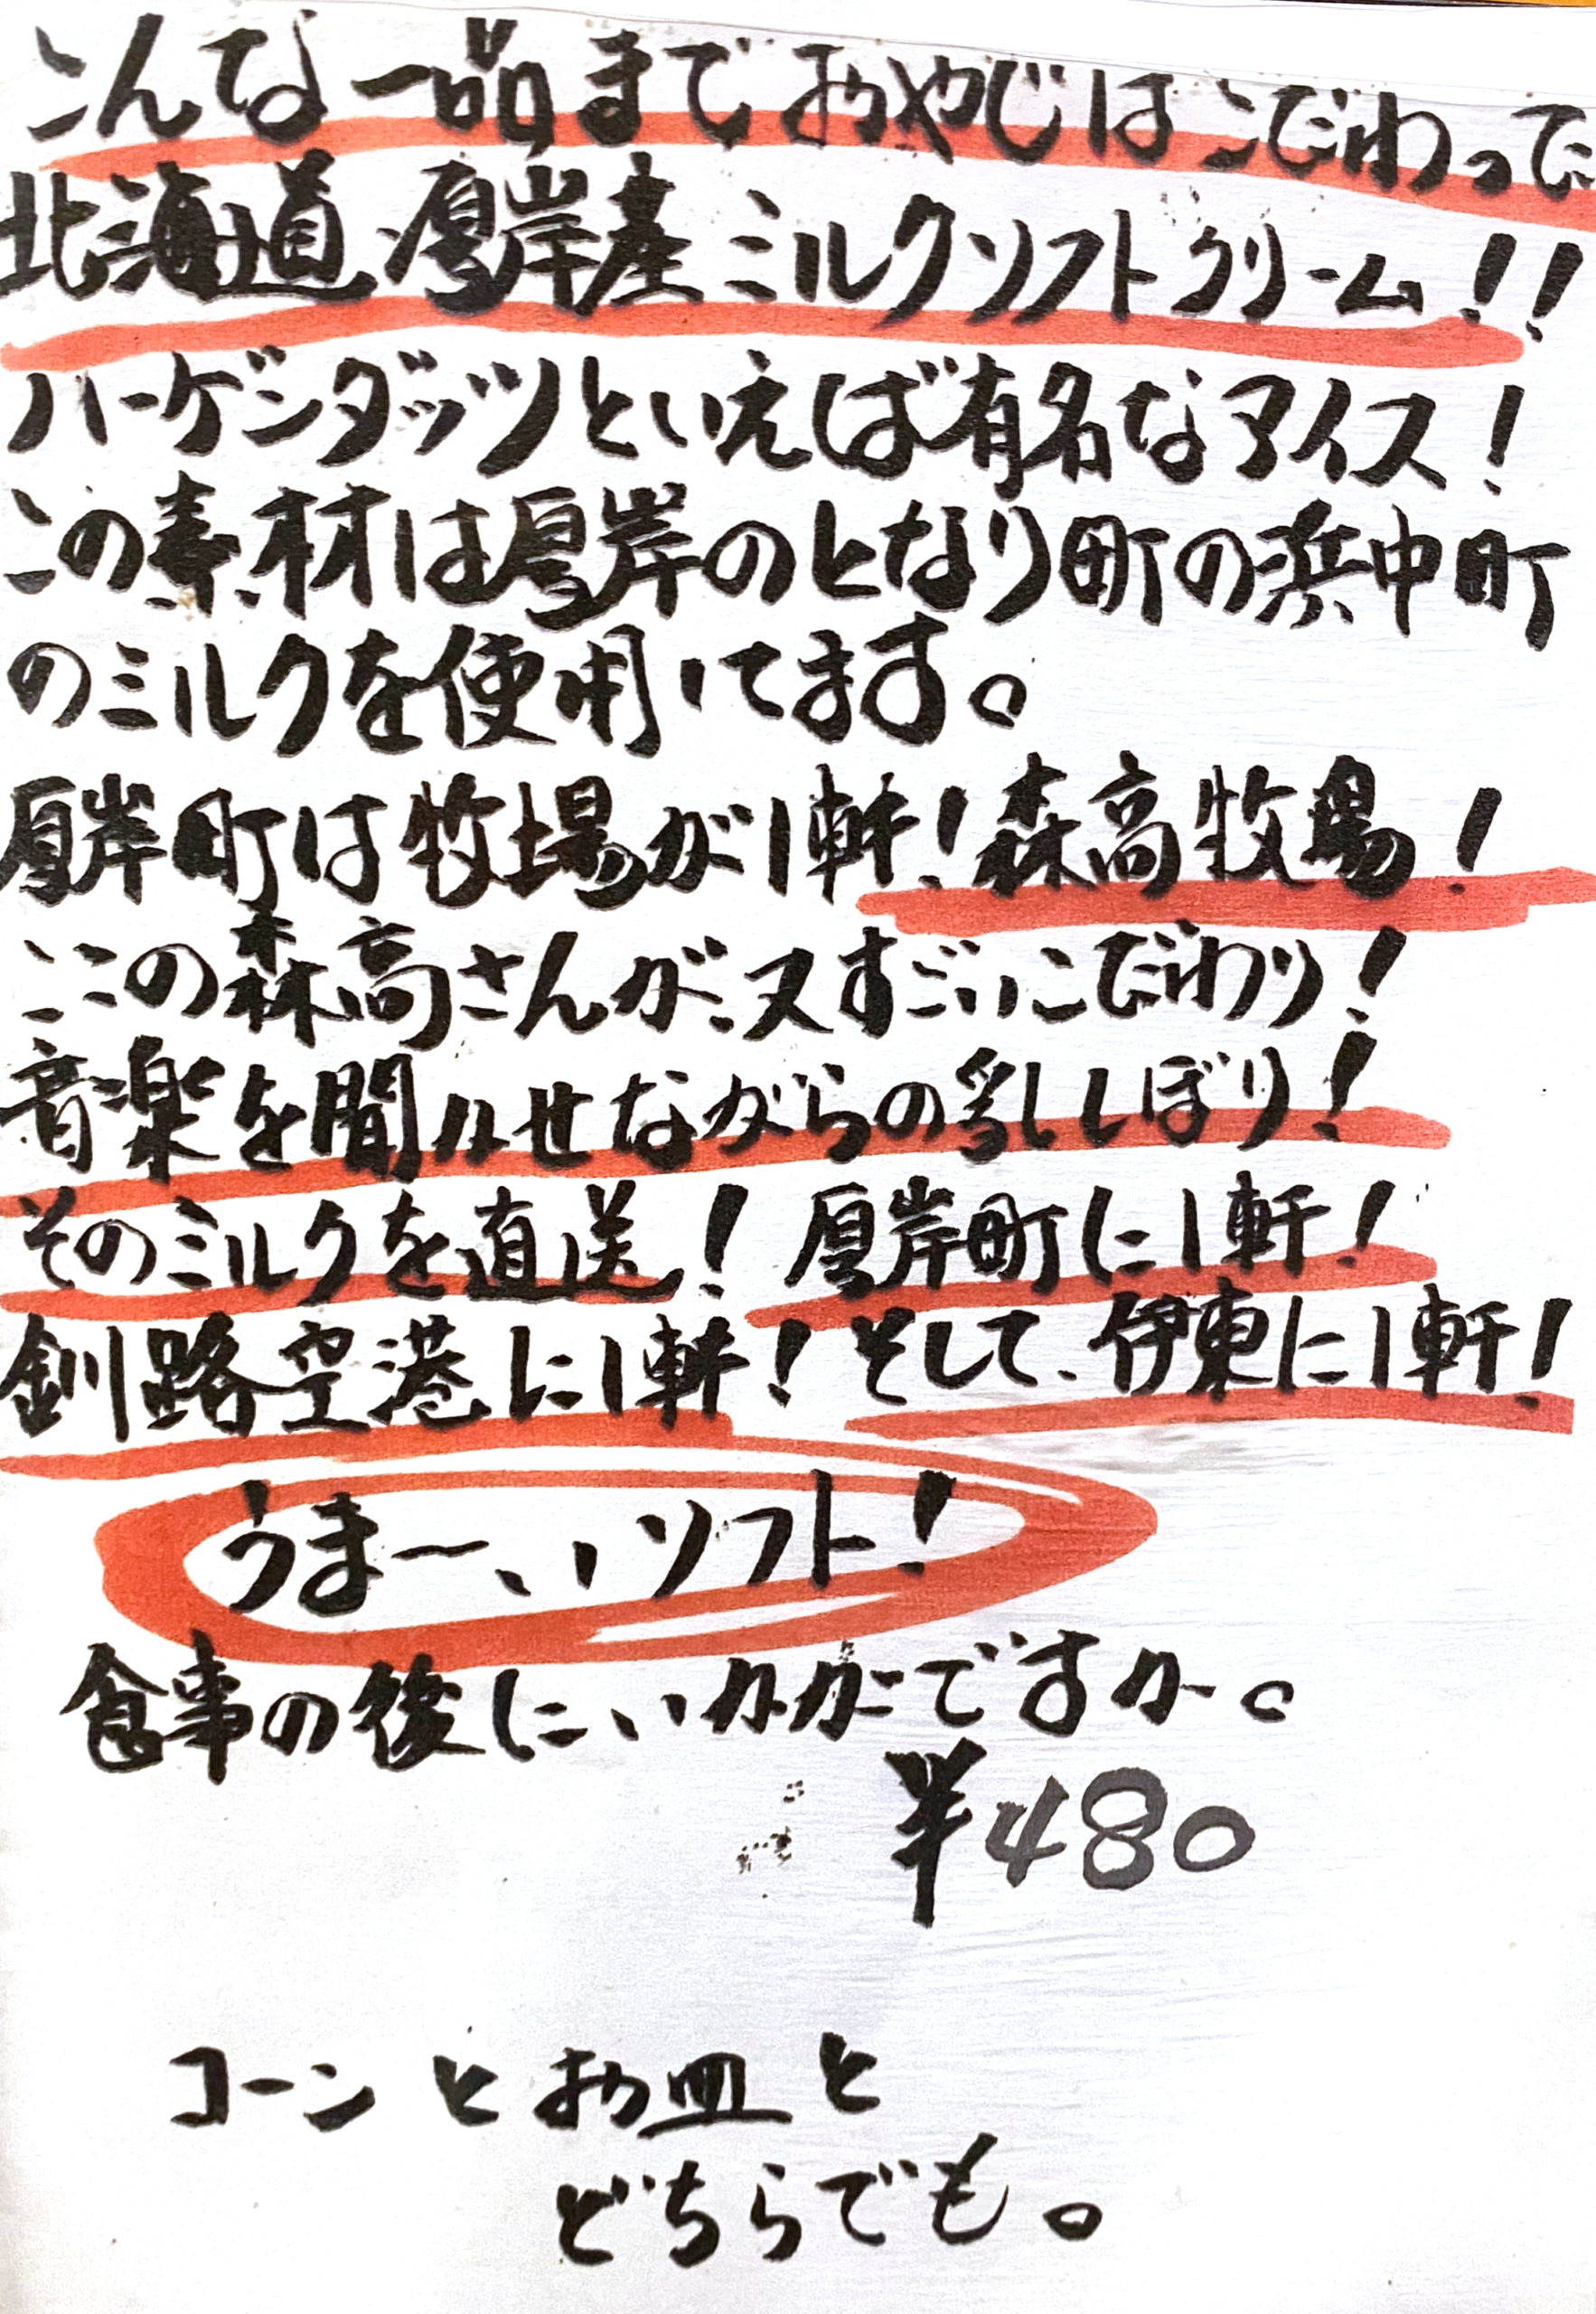 こんな一品までおやじはこだわった
北海道厚岸産ミルクソフトクリーム!!
ハーゲンダッツといえば有名なアイス!
この素材は厚岸のとなり町の浜中町
のミルクを使用してます。
厚岸町は牧場が1軒!森高牧場!
ここの森高さんが、又すごいこだわり!
音楽を聞かせながらの乳しぼり!
そのミルクを直送! 厚岸町に1軒!
釧路空港に1軒! そして、伊東に1軒!
うま〜いソフト!
食事の後に、いかがですか。
¥480
コーンとお皿と
どちらでも。